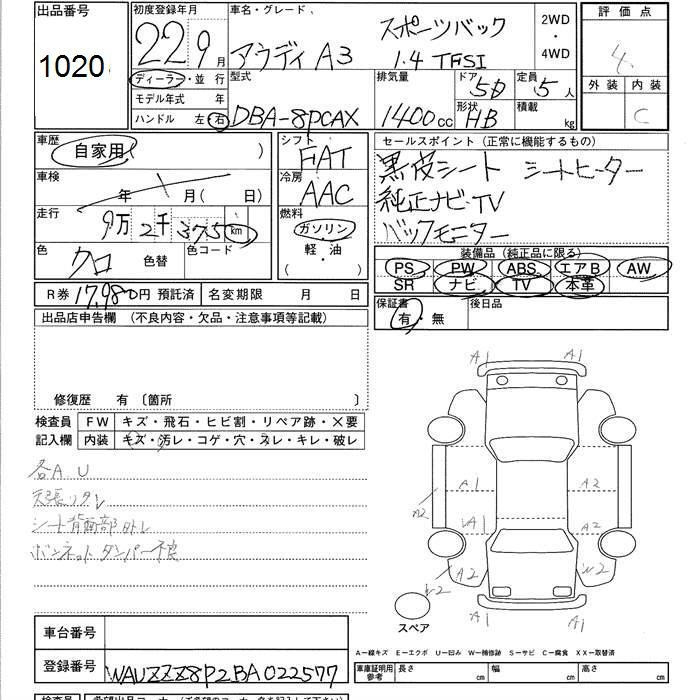 出品番号 1020
初度登録年月 22 9月
車名・グレード アウディ A3 スポーツバック 1.4 TFSI
2WD・4WD
評価点 4
外装 内装 C
ディーラー・並行
モデル年式 年
ハンドル 左・右
型式 DBA-8PCAX
排気量 1400cc
ドア 5D
形状 HB
定員 5人
積載 kg
車歴 自家用( )
シフト FAT
セールスポイント(正常に機能するもの)
黒皮シート シートヒーター
純正ナビ・TV
バックモニター
車検 年 月(日)
冷房 AAC
走行 9万2千375km
燃料 ガソリン・軽・油 ( )
色 クロ 色替 色コード
装備品(純正品に限る)
PS PW ABS エアB AW
SR ナビ TV 本革
R券 17,980円 預託済 名変期限 月 日
保証書 有・無 後日品
出品店申告欄 (不良内容・欠品・注意事項等記載)
修復歴 有〔箇所 〕
検査員記入欄
FW キズ・飛石・ヒビ割・リペア跡・×要
内装 キズ・汚レ・コゲ・穴・スレ・キレ・破レ
各A U
天張リタレ
シート背面部外レ
ボンネットダンパー不良
A1 A1
A1 A2
A2
A1 A2
A2 W2
W2
A1 A1
スペア
A=線キズ E=エクボ U=凹み W=補修跡 S=サビ C=腐食 XX=取替済
車台番号
登録番号 WAUZZZ8P2BA022577
車庫証明用参考 長さ 幅 高さ